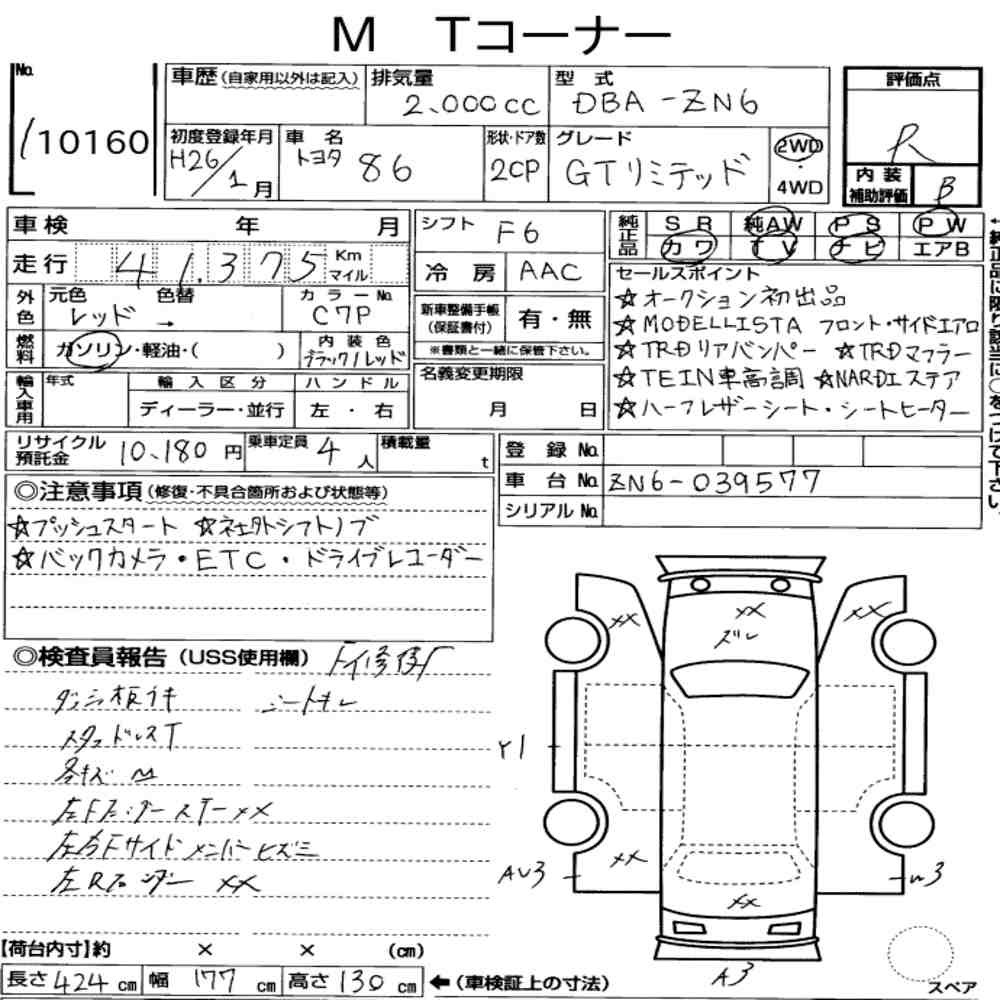 M Tコーナー
No. 110160
車歴(自家用以外は記入) 排気量 2.000cc 型式 DBA-ZN6 評価点 R
初度登録年月 H26/1月 車名 トヨタ 86 形状・ドア数 2CP グレード GTリミテッド 2WD 4WD
内装補助評価 B
車検 年 月 シフト F6 純正品 SR 純AW PS PW
カワ TV ナビ エアB
走行 41.375 Km マイル 冷房 AAC
←純正品に限り該当に○をつけて下さい。
外色 元色 レッド → 色替 カラーNo. C7P
新車整備手帳(保証書付) 有・無
※書類と一緒に保管下さい。
燃料 ガソリン・軽油・( ) 内装色 ブラック/レッド
輸入車用 年式 輸入区分 ディーラー・並行 ハンドル 左・右
名義変更期限 月 日
セールスポイント
☆オークション初出品
☆MODELLISTA フロント・サイドエアロ
☆TRDリアバンパー ☆TRDマフラー
☆TEIN車高調 ☆NARDIステア
☆ハーフレザーシート・シートヒーター
リサイクル預託金 10,180円 乗車定員 4人 積載量 t
登録No.
車台No. ZN6-039577
シリアルNo.
◎注意事項(修復・不具合箇所および状態等)
☆プッシュスタート ☆社外シフトノブ
☆バックカメラ・ETC・ドライブレコーダー
◎検査員報告(USS使用欄)
ダッシュ板ウキ シートキレ
スタッドレスT
各キズ M
左Fフェンダー ステー××
左右Fサイドメンバーヒズミ
左Rフェンダー ××
×× ×× ××
ズレ
Y1
AU3 ×× W3
××
A3
スペア
【荷台内寸】約 × × (cm)
長さ424cm 幅177cm 高さ130cm ←(車検証上の寸法)